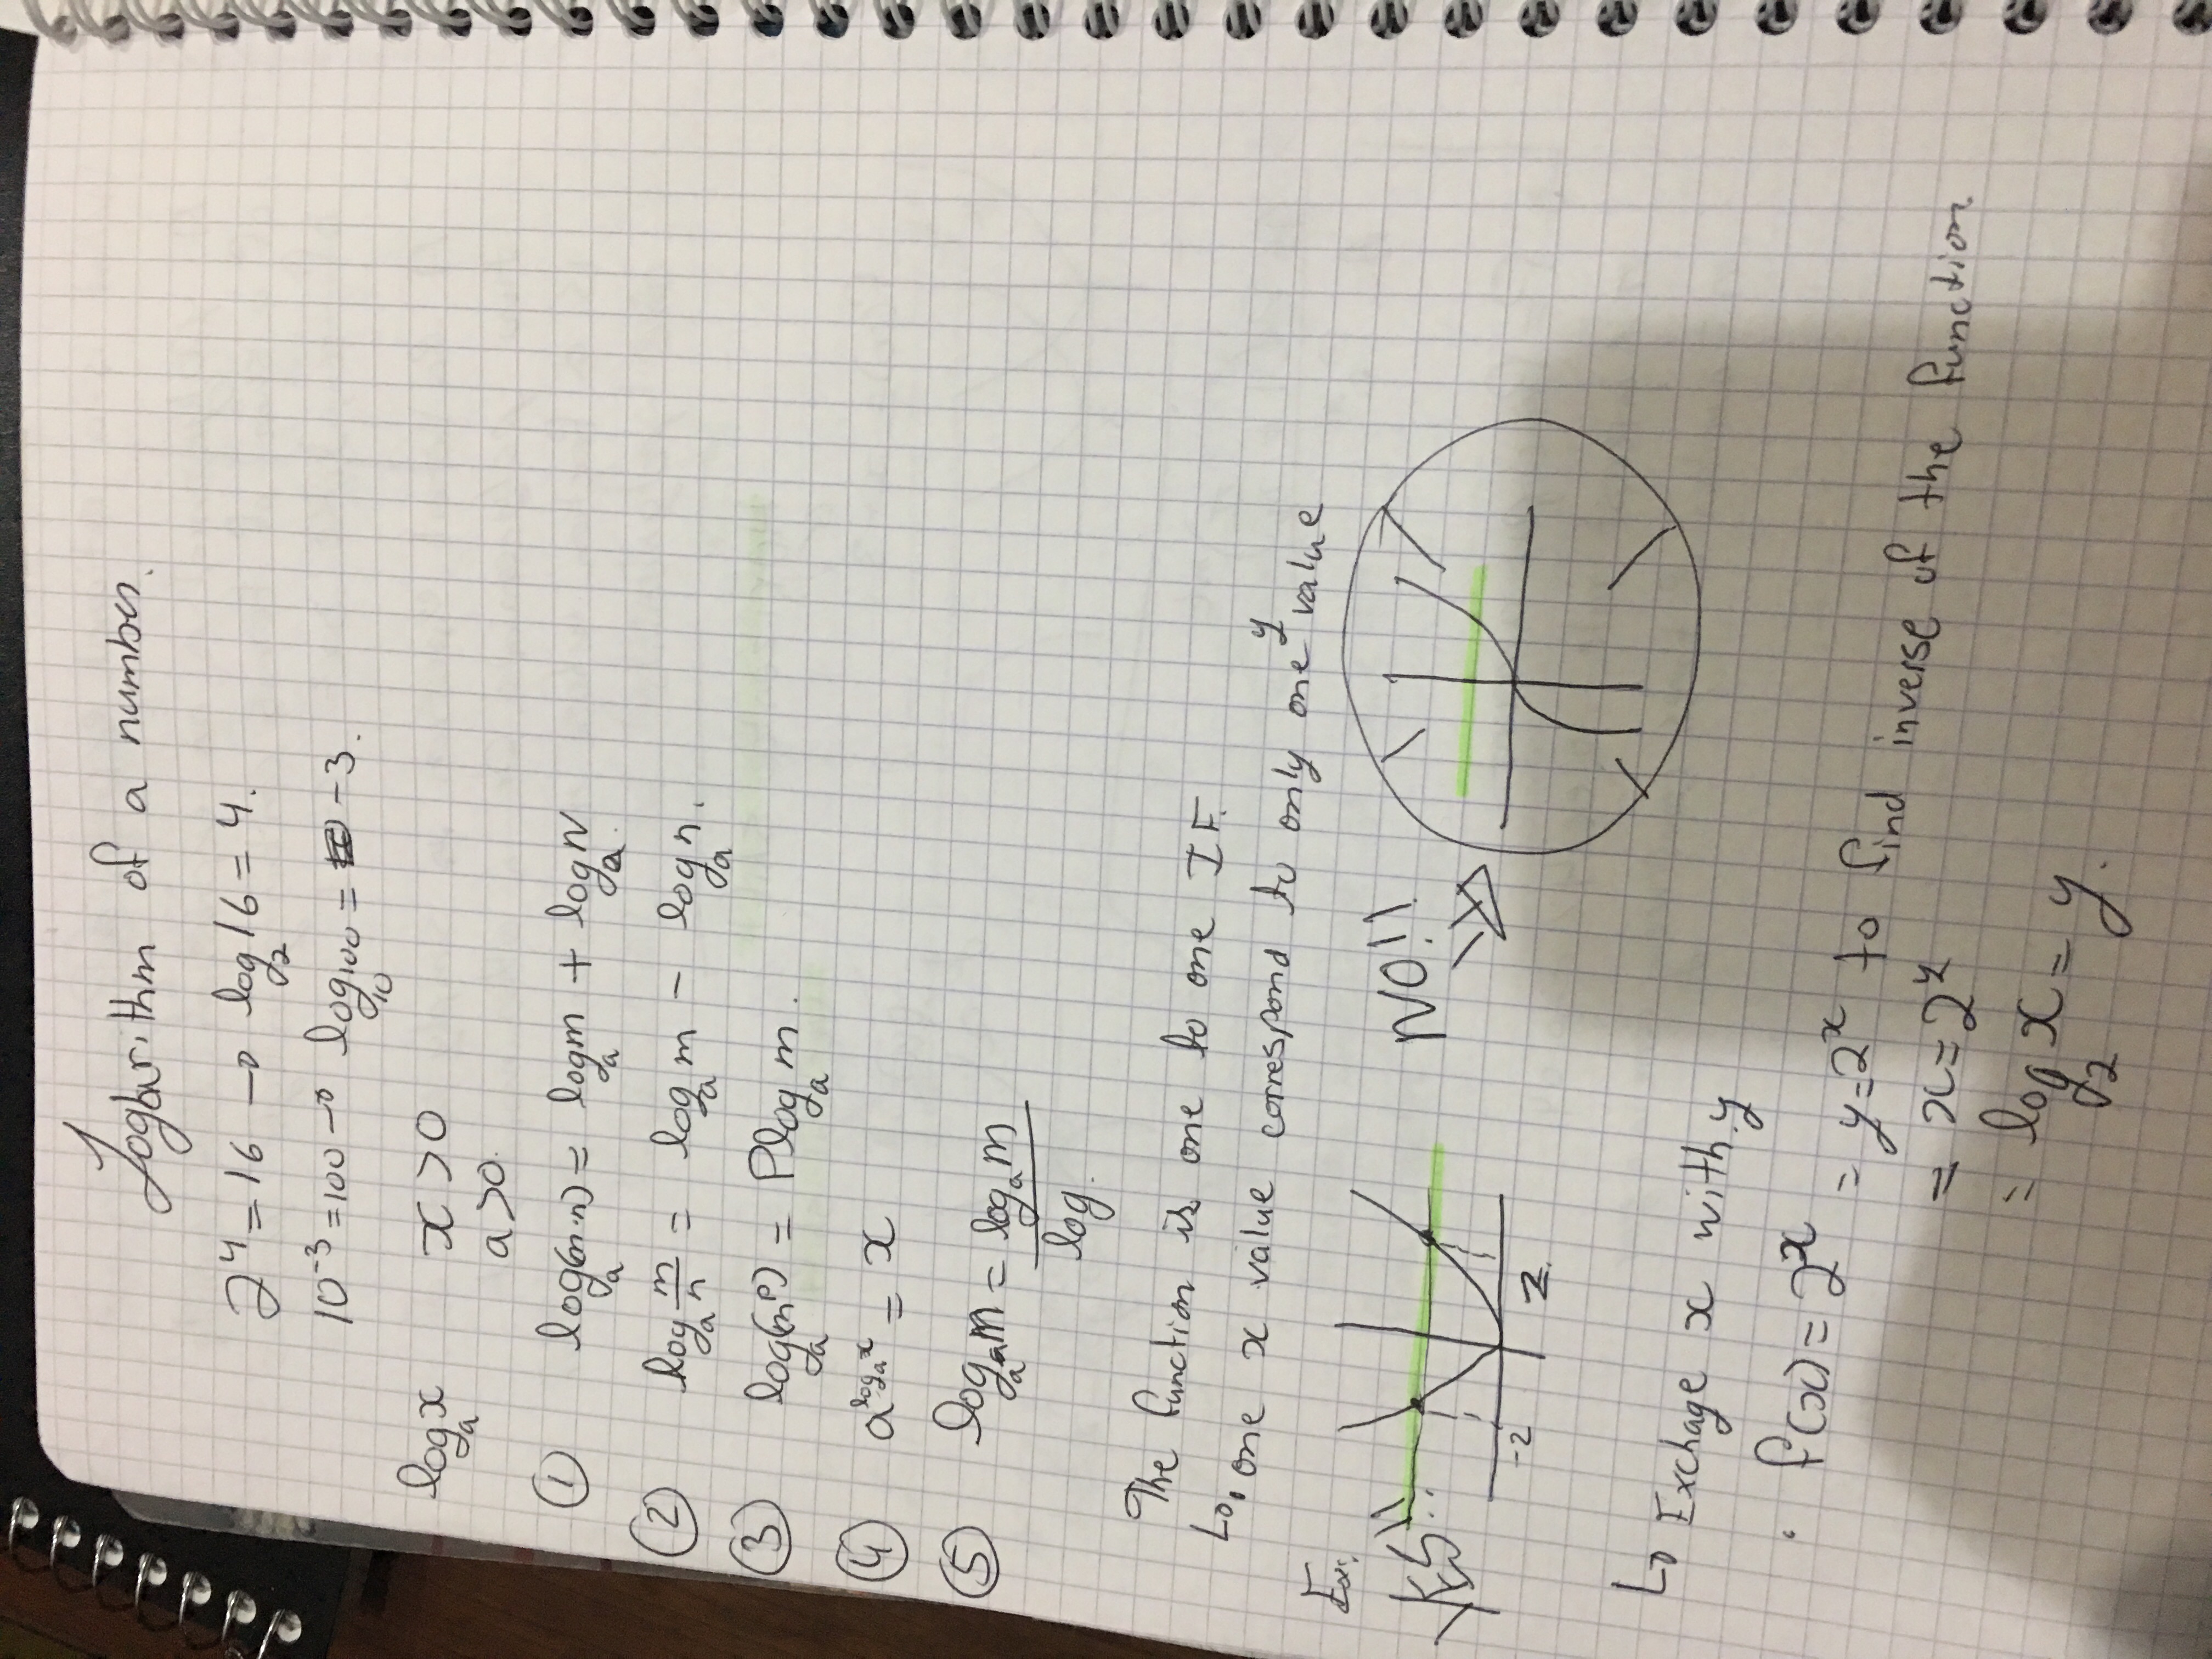 Logarithm of a number.
2⁴ = 16 → log₂ 16 = 4.
10⁻³ = 100 → log₁₀ 100 = -3.
logₐ x x > 0
a > 0.
① logₐ(m·n) = logₐ m + logₐ N
② logₐ m/n = logₐ m - logₐ n.
③ logₐ(mᴾ) = P logₐ m.
④ a^(logₐ x) = x
⑤ logₐ m = logₐ m / log.
The function is one to one IF.
↳ one x value correspond to only one y value
Ex:
NO!!
-2 2
↳ Exchage x with y
• f(x) = 2ˣ = y = 2ˣ to find inverse of the function
= x = 2ʸ
= log₂ x = y.